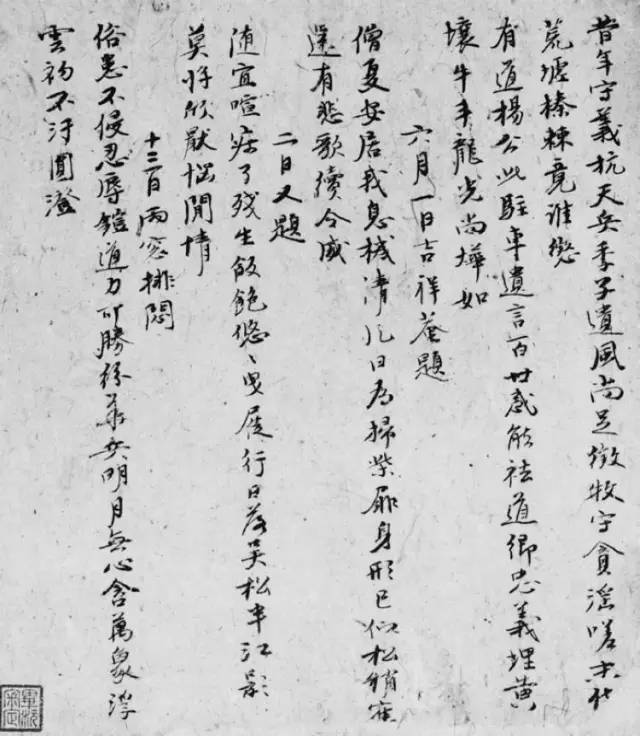 昔年守義抗天兵季子遺風尚足徵牧守貪淫嗟末代
荒墟榛棘竟誰懲
有道楊公此駐車遺言百世感能袪道鄉忠義埋黃
壤牛斗龍光尚燁如
六月一日吉祥菴題
僧夏安居我息機清凡日為掃柴扉身形已似松梢
還有悲歌續令威
二日又題
隨宜喧寂了殘生飯飽悠〻曳屐行日落吳松半江影
莫將欣厭惱閒情
十二日雨窓排悶
俗患不侵忍辱鎧道力可勝紛華兵明月無心含萬象浮
雲韵不汙圓澄